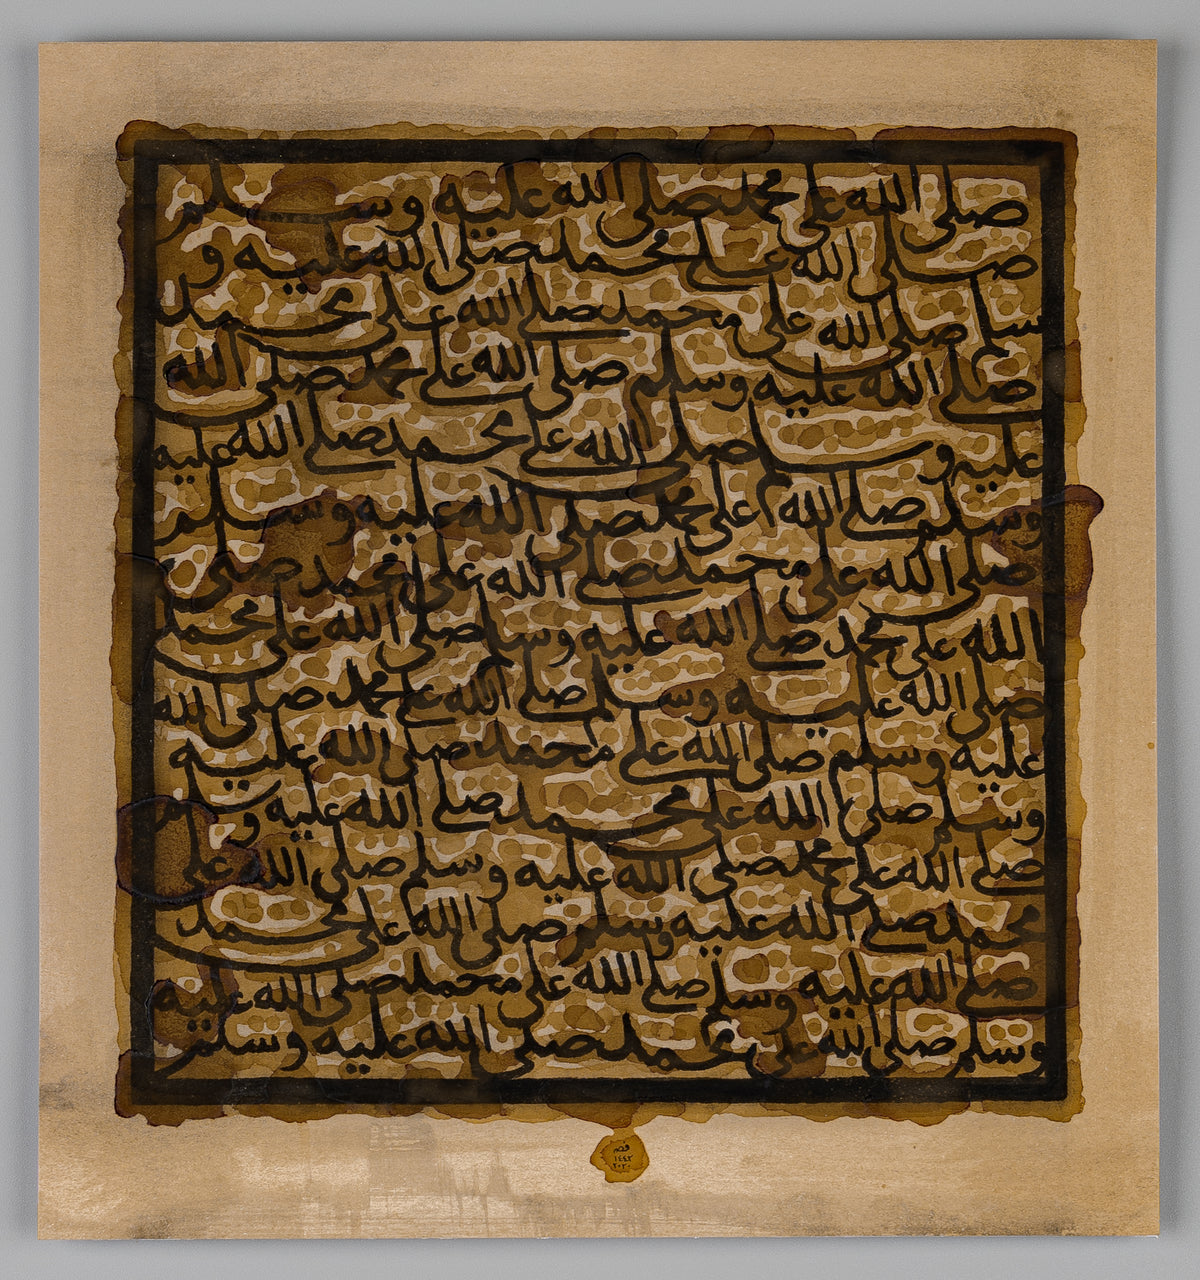 صلى الله على محمد صلى الله عليه وسلم
صلى الله على محمد صلى الله عليه و
سلم صلى الله على محمد صلى الله على محمد
صلى الله عليه وسلم صلى الله على محمد صلى الله
عليه وسلم صلى الله على محمد صلى الله عليه
وسلم صلى الله على محمد صلى الله عليه وسلم
صلى الله على محمد صلى الله على محمد صلى
الله على محمد صلى الله عليه وسلم صلى الله على محمد
صلى الله عليه وسلم صلى الله على محمد صلى الله
عليه وسلم صلى الله على محمد صلى الله عليه
وسلم صلى الله على محمد صلى الله عليه و
صلى الله على محمد صلى الله عليه وسلم صلى الله على
محمد صلى الله عليه وسلم صلى الله على محمد
صلى الله عليه وسلم صلى الله على محمد صلى الله عليه
وسلم صلى الله على محمد صلى الله عليه وسلم
١٤٤٢
٢٠٢٠